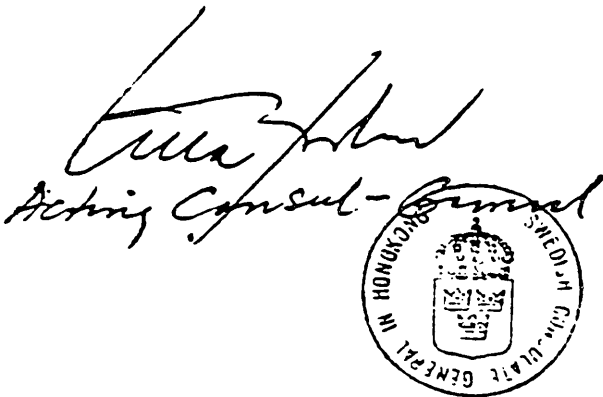 Ulla
Acting Consul-General
SWEDISH CONSULATE GENERAL IN HONGKONG
2